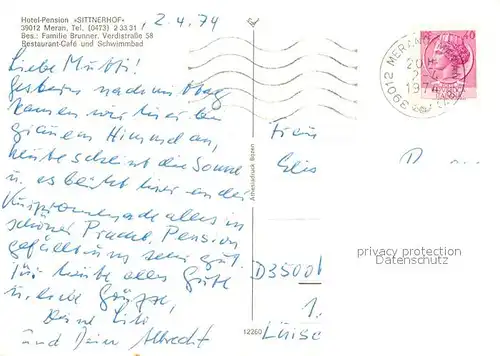 Hotel-Pension «SITTNERHOF»
39012 Meran, Tel. (0473) 2 33 31
Bes.: Familie Brunner, Verdistraße 58
Restaurant-Café und Schwimmbad
, 2. 4. 74
Liebe Mutti!
gestern nachmittag
kamen wir hier bei
grauem Himmel an,
heute scheint die Sonne
u. es blüht hier an der
Kurpromenade alles in
schönster Pracht. Pension
gefällt uns sehr gut.
Für heute alles Gute
u. liebe Grüsse,
Deine Lilo
und Dein Albrecht
Amonddruck Bozen
12260
39012 MERANO
20H
2-4
1974
40
Frau
Elis
D 3500
1.
Luise
privacy protection
Datenschutz